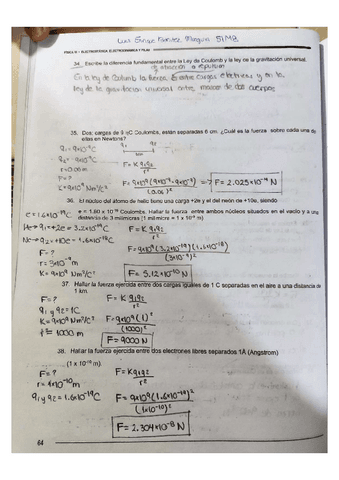 Luis Enrique 51MB
FÍSICA III - ELECTROSTÁTICA, ELECTRODINÁMICA Y
34. Escribe la diferencia fundamental entre la Ley de Coulomb y la ley de la gravitación universal.
de atracción o repulsión
En la ley de Coulomb la fuerza es entre cargas electricas y en la
ley de la gravitacion universal entre masas de dos cuerpos
35. Dos; cargas de 9 ηC Coulombs, están separadas 6 cm. ¿Cuál es la fuerza sobre cada una de ellas en Newtons?
q₁ = 9x10⁻⁹C
q₂ = -9x10⁻⁹C
r=0.06m
F=?
K=9x10⁹ Nm²/C²
q₁ q₂
F=K q₁q₂/r²
F=9x10⁹(9x10⁻⁹·9x10⁻⁹)/(0.06)² => F=2.025x10⁻⁴ N
36. El núcleo del átomo de helio tiene una carga +2e y el del neón de +10e, siendo
e = 1.60 x 10⁻¹⁹ Coulomb. Hallar la fuerza entre ambos núcleos situados en el vacío y a una
distancia de 3 milimicras (1 milimicra = 1 x 10⁻⁹ m)
e=1.6x10⁻¹⁹C
He->q₁=+2e=3.2x10⁻¹⁹C
Ne->q₂=+10e=1.6x10⁻¹⁸C
F=?
r=3x10⁻⁹m
K=9x10⁹ Nm²/C²
F=K q₁q₂/r²
F=9x10⁹(3.2x10⁻¹⁹)(1.6x10⁻¹⁸)/(3x10⁻⁹)²
F=5.12x10⁻¹⁰N
37. Hallar la fuerza ejercida entre dos cargas iguales de 1 C separadas en el aire a una distancia de
1 km.
F=?
q₁ y q₂ 1C
K=9x10⁹ Nm²/C²
r=1000m
F=K q₁q₂/r²
F=9x10⁹(1)²/(1000)²
F=9000 N
38. Hallar la fuerza ejercida entre dos electrones libres separados 1A (Angstrom)
(1 x 10⁻¹⁰ m)
F=?
r=1x10⁻¹⁰m
q₁ y q₂ =1.6x10⁻¹⁹C
F=K q₁q₂/r²
F=9x10⁹(1.6x10⁻¹⁹)²/(1x10⁻¹⁰)²
F=2.304x10⁻⁸ N
64